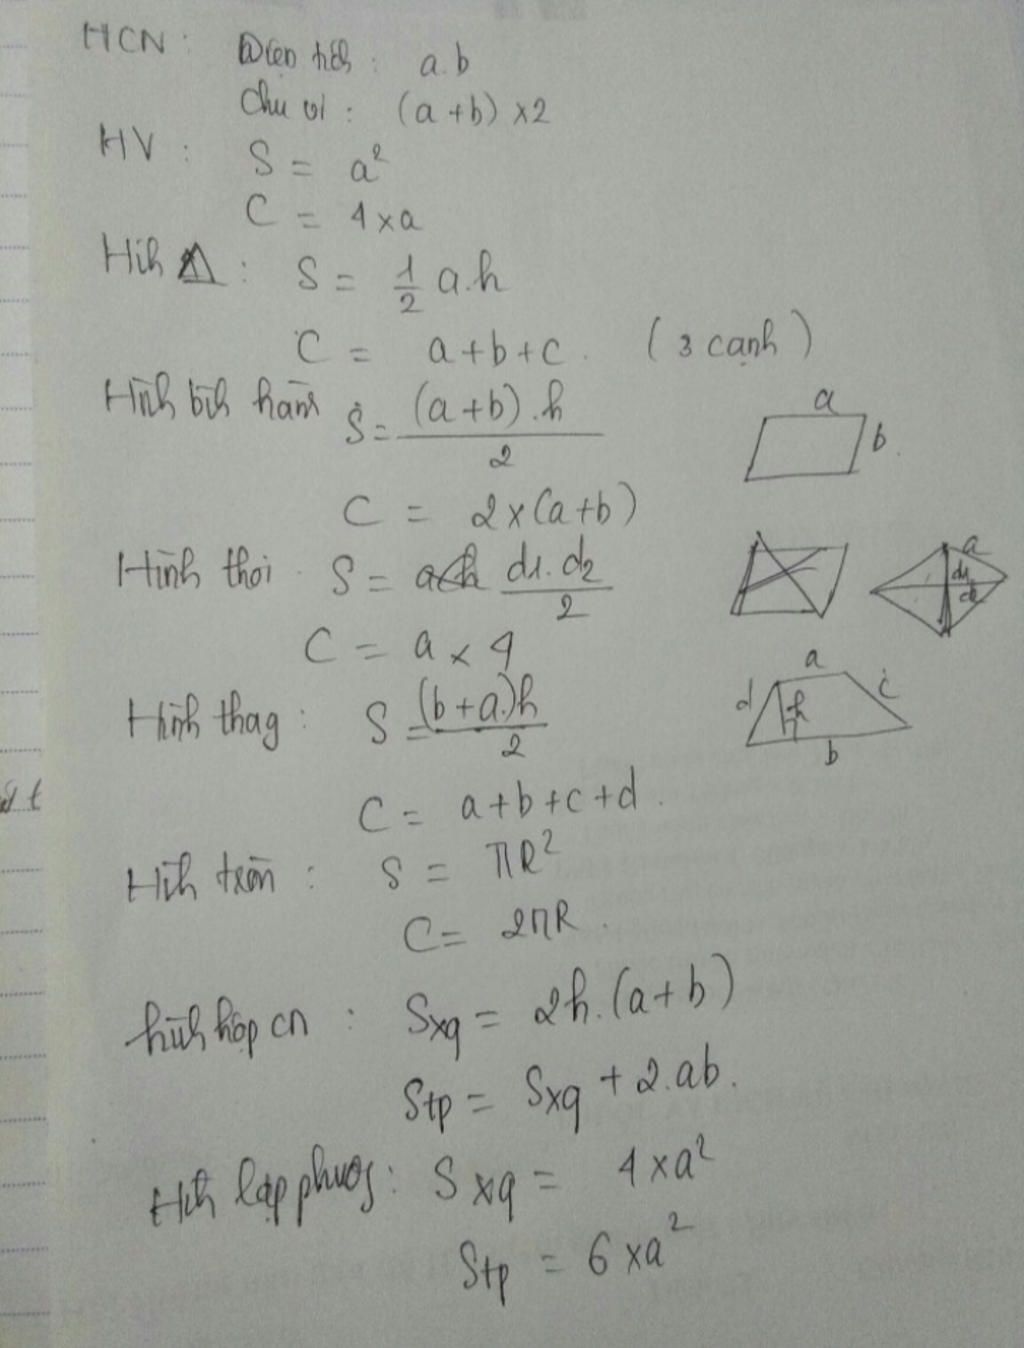 HCN: Diện tích: a.b
Chu vi: (a+b) x2
HV: S = a²
C = 4xa
Hih △: S = 1/2 a.h
C = a+b+c. (3 cạnh)
Hìh bìh hàm S = (a+b).h / 2
C = 2x(a+b)
a
b
Hình thoi S = d1.d2 / 2
C = a x 4
a
d1
d2
Hình thag: S = (b+a)h / 2
C = a+b+c+d.
a
d
h
c
b
Hìh tròn: S = πR²
C = 2πR.
hìh hộp cn: Sxq = 2h.(a+b)
Stp = Sxq + 2.ab.
Hìh lập phươg: Sxq = 4xa²
Stp = 6xa²